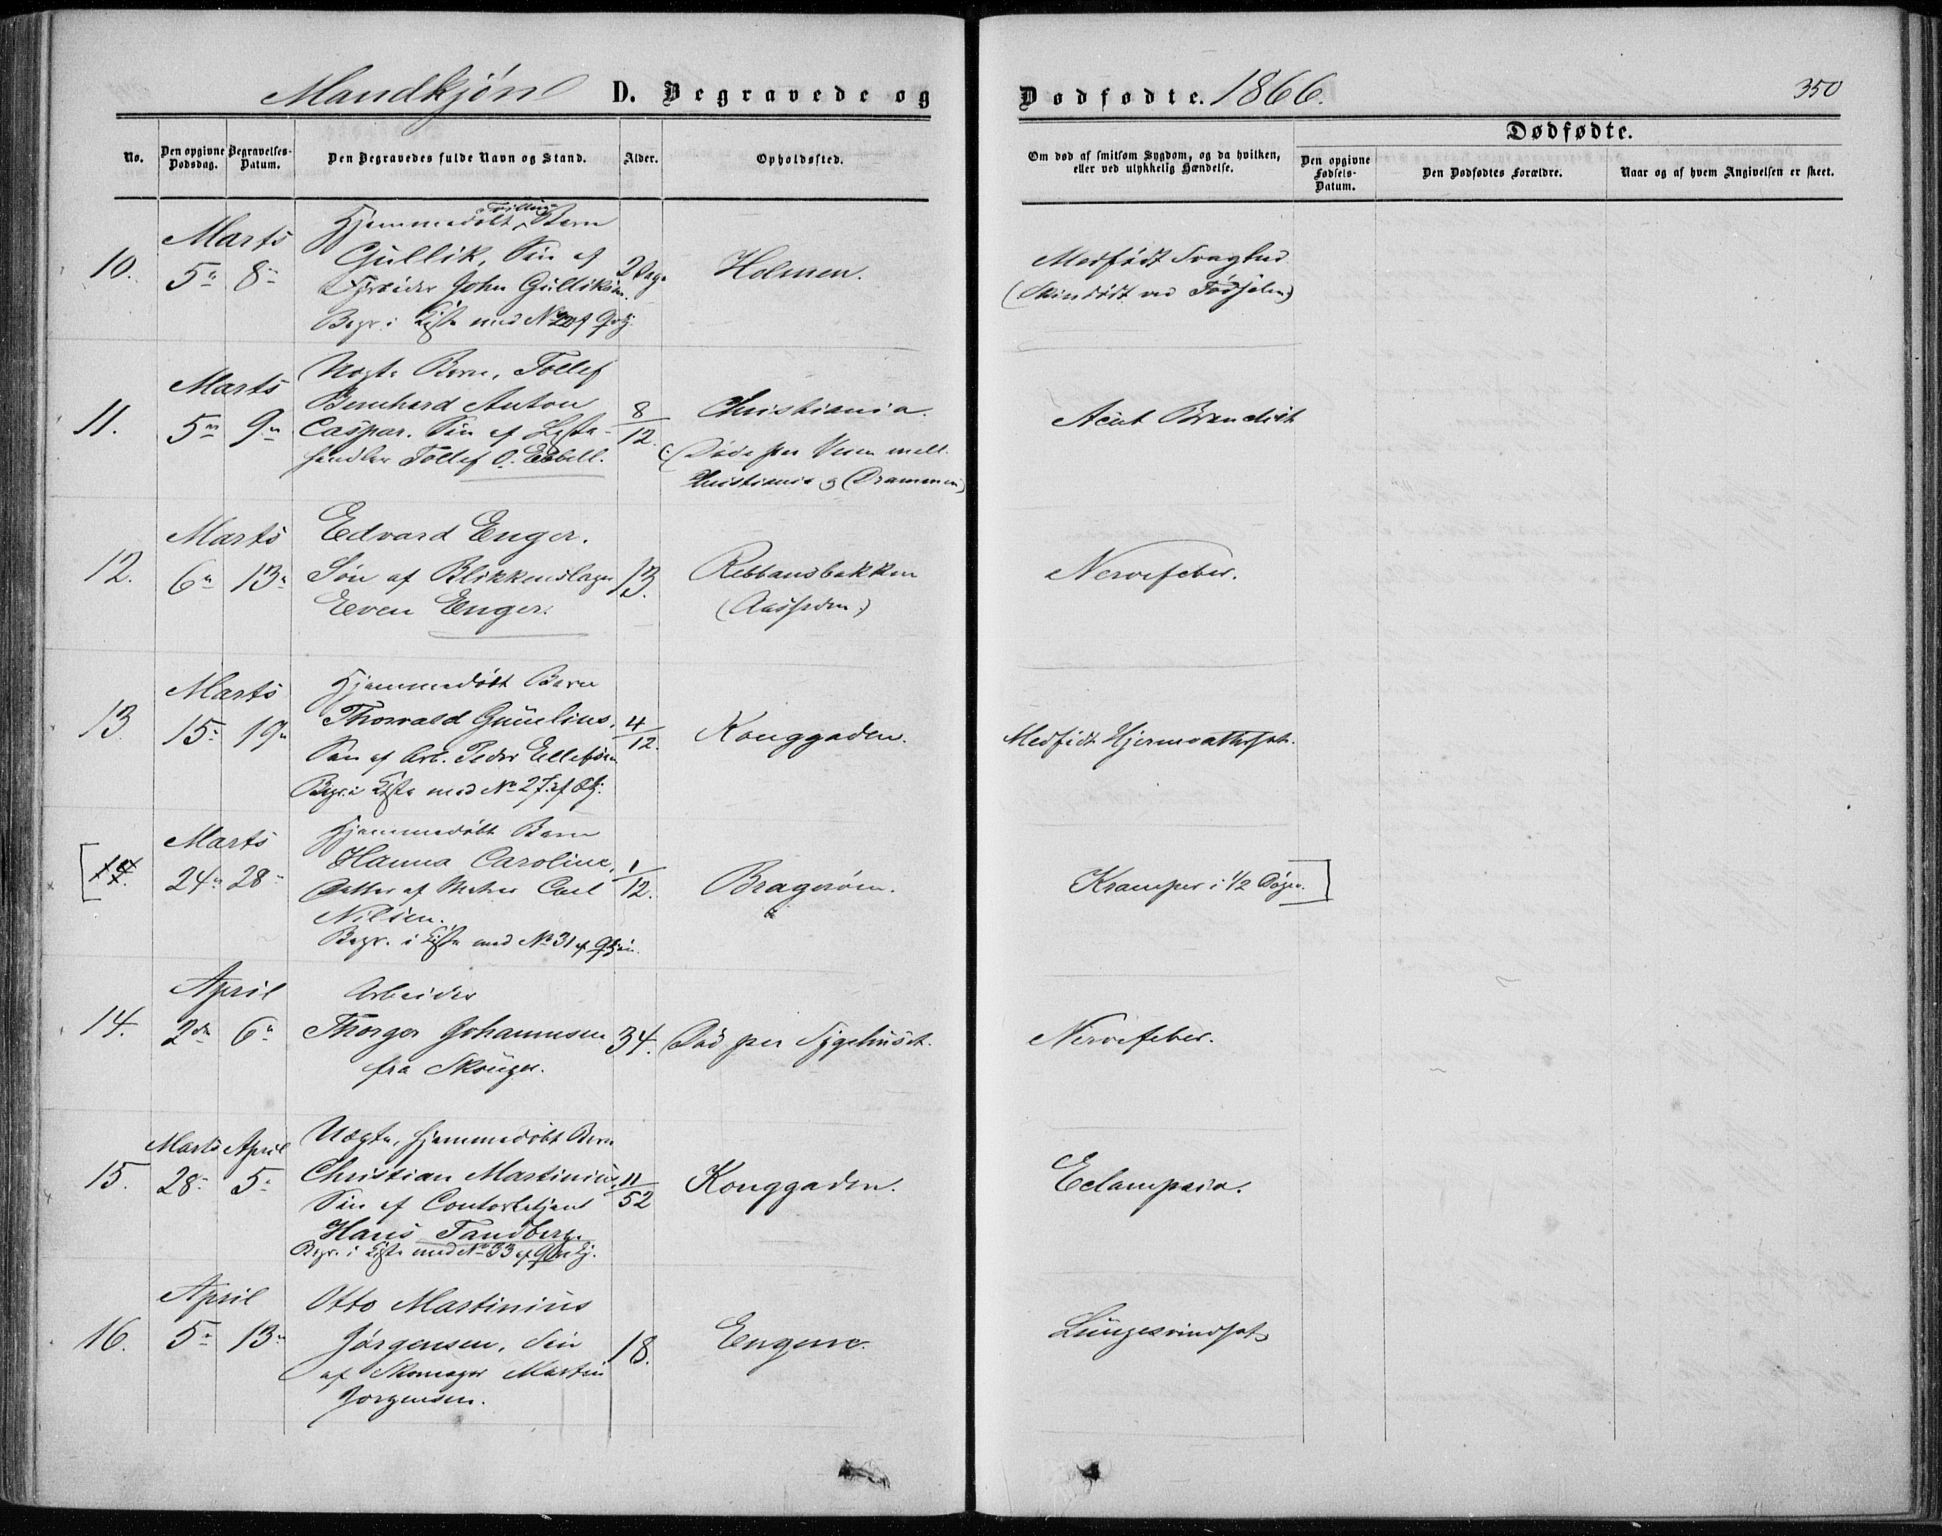 Mandkjøn D. Begravede og Dødfødte. 1866. 350
No.
Den opgivne Dødsdag.
Begravelses-Datum.
Den Begravedes fulde Navn og Stand.
Alder.
Opholdssted.
Om død af smitsom Sygdom, og da hvilken, eller ved ulykkelig Hændelse.
Dødfødte.
Den opgivne Fødsels-Datum.
Den Dødfødtes Forældre.
Naar og af hvem Angivelsen er skeet.
10. Marts 5 8
Hjemmedøbt Tvilling Barn
Gullik, Søn af
John Gulliksen.
Begr. i Kiste med No 22 af Qvkj.
2 Dage
Holmen.
Medfødt Svaghed
(Skindødt ved Fødselen)
11. Marts 5 9
Uægte Barn, Tollef
Bernhard Anton
Caspar. Søn af
handler Tollef O. Ebbell.
8/12.
Christiania.
(Døde paa Veien mell.
Christiania og Drammen)
Acut Bronchit
12. Marts 6 13
Edvard Enger.
Søn af Blikkenslager
Even Enger.
13.
Rebbansbakken
(Aassiden)
Nervefeber.
13 Marts 15 19
Hjemmedøbt Barn
Thorvald Gunelius,
Søn af Arb. Peder Ellefsen
Begr. i Kiste med No 27 af Qkj.
4/12.
Konggaden.
Medfødt Hjerne
[14. Marts 24 28
Hjemmedøbt Barn
Hanna Caroline,
Datter af Matros Carl
Nilsen.
Begr. i Kiste med No 31 af Qkjøn.
1/12.
Bragerøen.
Kramper i 1/2 Døgn.]
14. April 2den 6
Arbeider
Thorger Johannesen
fra Skouger.
34.
Død paa Sygehuset.
Nervefeber.
15. Marts 28 April 5
Uægte, hjemmedøbt Barn
Christian Martinius,
Søn af Contorbetjent
Hans Tandberg.
Begr. i Kiste med No 33 af Qvkj.
11/52
Konggaden.
Eclampsia.
16. April 5 13
Otto Martinius
Jørgensen, Søn
af Skomager Martin
Jørgensen.
18.
Engene.
Lungesvindsot